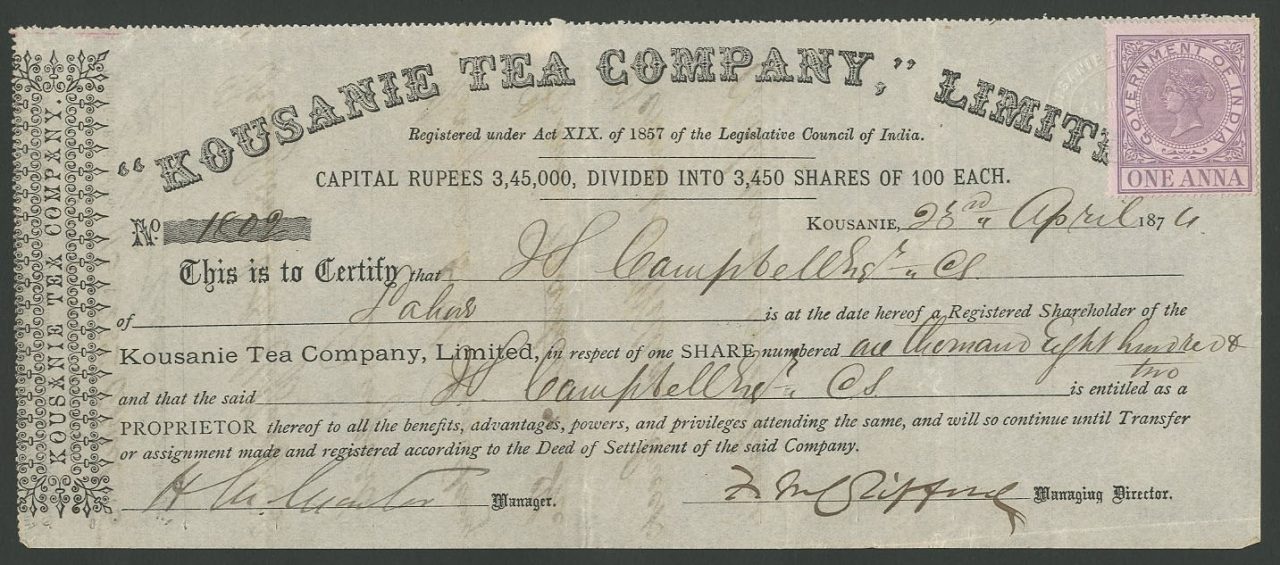 "KOUSANIE TEA COMPANY," LIMITE
GOVERNMENT OF INDIA
ONE ANNA
KOUSANIE TEA COMPANY.
Registered under Act XIX. of 1857 of the Legislative Council of India.
CAPITAL RUPEES 3,45,000, DIVIDED INTO 3,450 SHARES OF 100 EACH.
No 1802
KOUSANIE, 23rd April 1874
This is to Certify that Campbell Esqr CS
of Lahore is at the date hereof a Registered Shareholder of the
Kousanie Tea Company, Limited, in respect of one SHARE numbered one thousand Eight hundred &
two
and that the said Campbell Esqr CS is entitled as a
PROPRIETOR thereof to all the benefits, advantages, powers, and privileges attending the same, and will so continue until Transfer
or assignment made and registered according to the Deed of Settlement of the said Company.
Manager.
Managing Director.